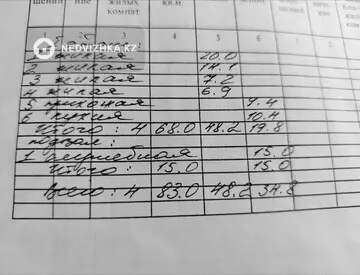 щений ние жилых комнат кв.м.
2 3 4 5 6
NEDVIZHKA.KZ
1 жилая 20.0
2 жилая 14.1
3 жилая 7.2
4 жилая 6.9
5 9.4
6 кухня 10.4
Итого: 4 68.0 48.2 19.8
подвал:
1 служебная 15.0
Итого: 15.0 15.0
Всего: 4 83.0 48.2 34.8